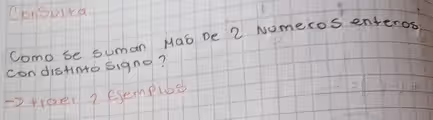 Consulta
Como se suman Mas De 2 Numeros enteros
con distinto signo?
→ traer 2 Ejemplos